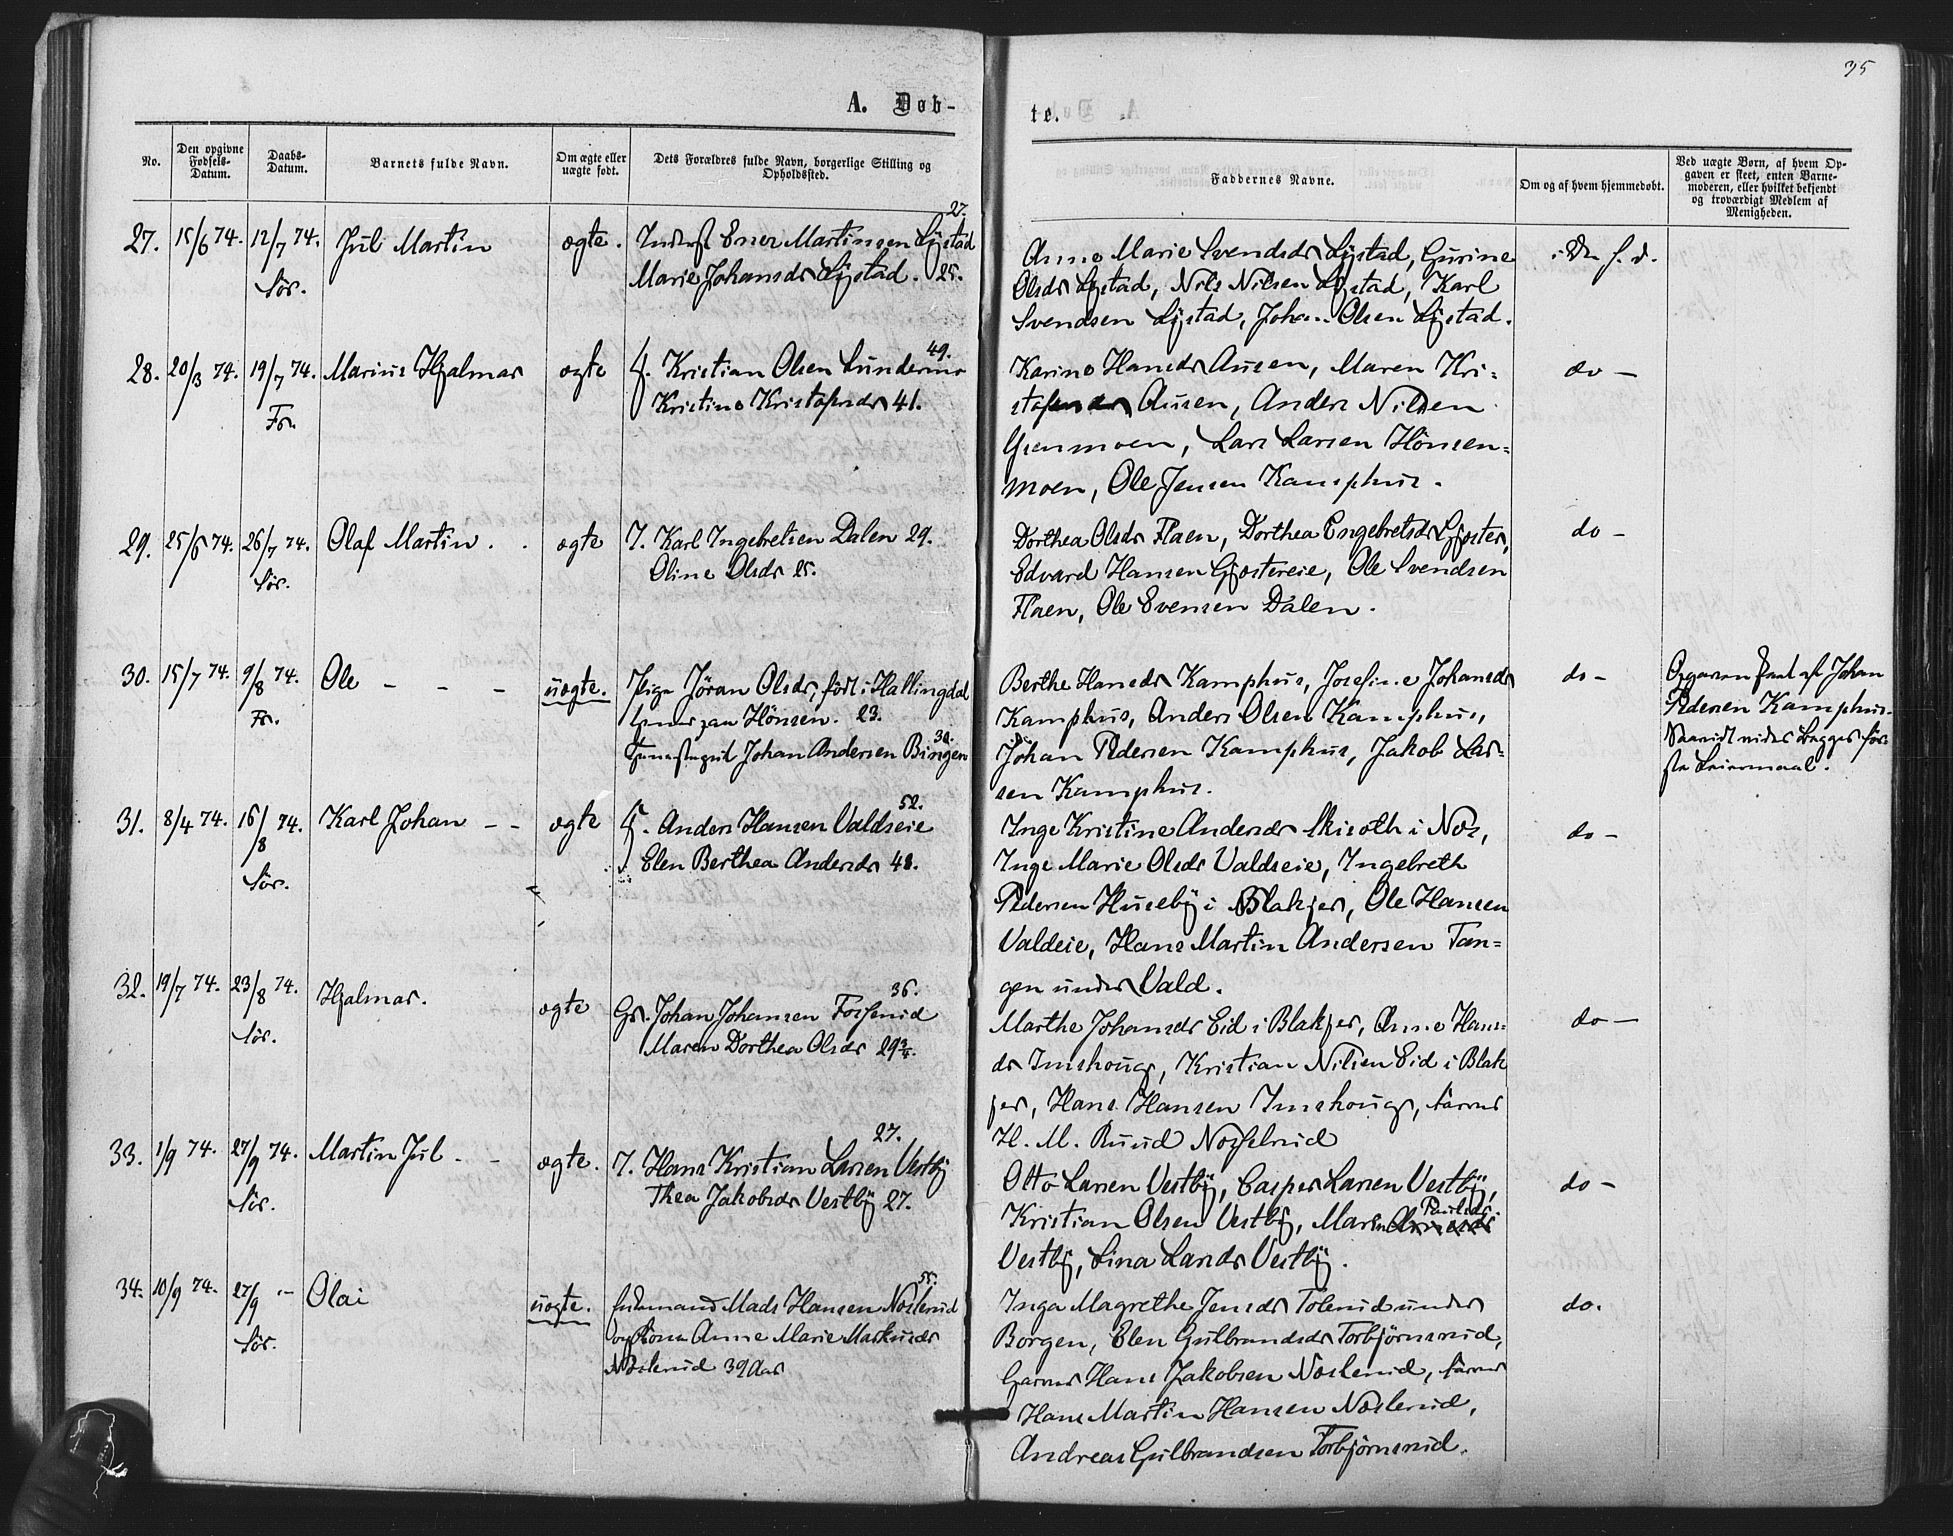 35
A. Døb-
te.
No.
Den opgivne Fødsels-Datum.
Daabs-Datum.
Barnets fulde Navn.
Om ægte eller uægte født.
Dets Forældres fulde Navn, borgerlige Stilling og Opholdssted.
Faddernes Navne.
Om og af hvem hjemmedøbt.
Ved uægte Børn, af hvem Op-
gaven er skeet, enten Barne-
moderen, eller hvilket bekjendt
og troværdigt Medlem af
Menigheden.
27. 15/6 74. 12/7 74. Sør. Jul Martin ægte.
27.
Inderst Ener Martinsen Lystad
Marie Johansdr Lystad. 25.
Anne Marie Svendsdr Lystad, Gurine
Olsdr Lystad, Nils Nilsen Lystad, Karl
Svendsen Lystad, Johan Olsen Lystad.
28. 20/3 74. 19/7 74. Fr. Marius Hjalmar ægte
49.
Kristian Olsen
Kristine Kristofersdr 41.
Karine Hansdr Ausen, Maren Kri-
Ausen, Anders Nilsen
Grenmoen, Lars Larsen Hönsen-
moen, Ole Jensen Kamphus.
do —
29. 25/6 74. 26/7 74. Sør. Olaf Martin . . ægte
I. Karl Ingebretsen Dalen 29.
Oline Olsdr 25.
Dorthea Olsdr Flaen, Dorthea Engebretsdr
Edvard Hansen Gjöstereie, Ole Svendsen
Flaen, Ole Evensen Dalen.
do —
30. 15/7 74. 9/8 74. Fr. Ole - - - uægte.
Pige Jöran Olsdr, født i Hallingdal
Hönsen. 23.
30.
Johan Andersen Bingen
Berthe Hansdr Kamphus, Josefine Johansdr
Kamphus, Anders Olsen Kamphus,
Johan Pedersen Kamphus, Jakob Lar-
sen Kamphus.
do —
Opgaven skeet af Johan
Pedersen Kamphus.
Begges før-
ste Leiermaal.
31. 8/4 74. 16/8 74. Sør. Karl Johan - - ægte
52.
Anders Hansen Valdseie
Elen Berthea Andersdr 48.
Inge Kristine Andersdr i Næs,
Inge Marie Olsdr Valdseie, Ingebreth
Pedersen Huseby i Blakjer, Ole Hansen
Valdeie, Hans Martin Andersen Tan-
gen under Vald.
do —
32. 19/7 74. 23/8 74. Sør. Hjalmar. ægte
36.
Gr. Johan Johansen Fosserud
Maren Dorthea Olsdr 29 3/4.
Marthe Johansdr Eid i Blakjer, Anne Hans-
dr Imshoug, Kristian Nilsen Eid i Blak
jer, Hans Hansen Imshoug,
H. M. Ruud
do —
33. 1/9 74. 27/9 74. Sør. Martin Jul - - ægte.
27.
I. Hans Kristian Larsen Vestby
Thea Jakobsdr Vestby 27.
Otto Larsen Vestby, Casper Larsen Vestby,
Kristian Olsen Vestby, Maren
Vestby, Lina Larsdr Vestby.
do —
34. 10/9 74. 27/9 — Sør. Olai uægte.
55.
Mads Hansen Noslerud
og Kone Anne Marie Markusdr
Noslerud 39 Aar
Inga Magrethe Jensdr Tolerud under
Borgen, Elen Gulbrandsdr Torbjörnsrud,
Hans Jakobsen Noslerud,
Hans Martin Hansen Noslerud,
Andreas Gulbrandsen Torbjörnsrud.
do.